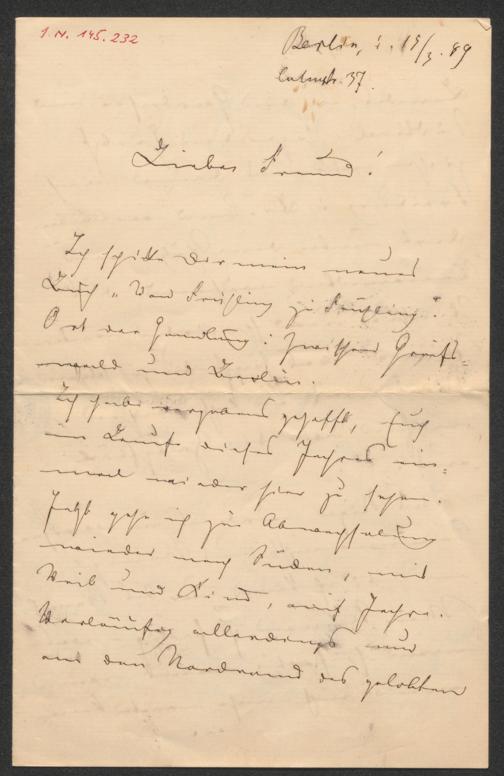 I. N. 145.232
Berlin, d. 15/3. 89
Culmstr. 37.
Lieber Freund!
Ich schicke Dir mein neues
Buch „Von Frühling zu Frühling“.
Ort der Handlung: zwischen Greifs-
wald und Berlin.
Ich habe vergebens gehofft, Euch
im Laufe dieses Jahres ein-
mal wieder hier zu sehen.
Jetzt gehe ich zur Abwechselung
wieder nach Süden, mit
Weib und Kind, auf Jahre.
Vorläufig allerdings nur
an den Nordrand des gelobten